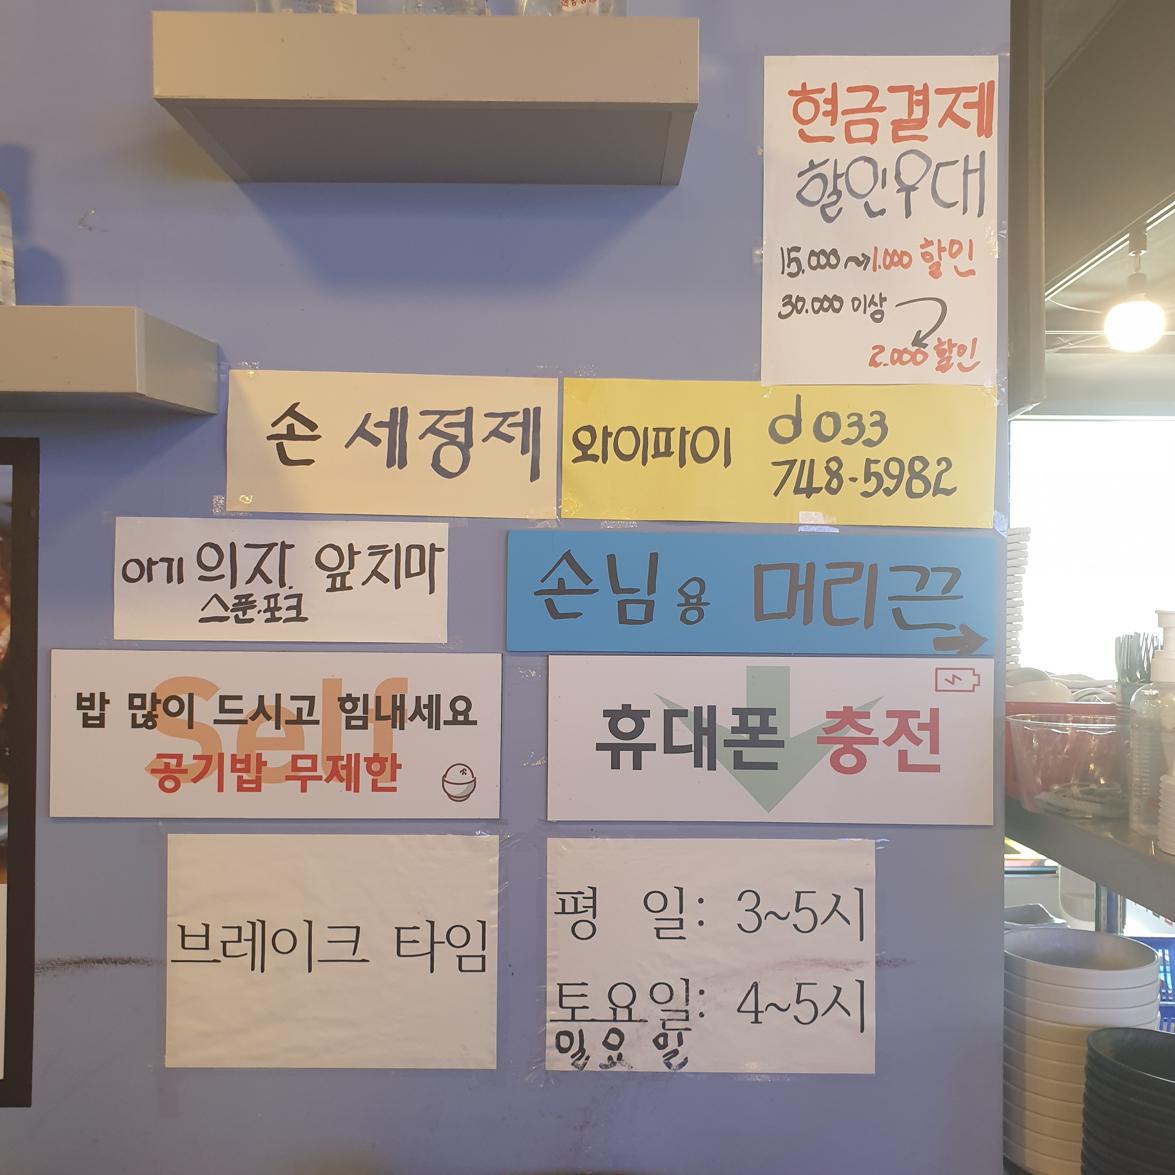 현금결제
할인우대
15.000~→1.000 할인
30.000 이상
2.000 할인
손 세정제
와이파이
do33
748-5982
아기 의자 앞치마
스푼·포크
손님용 머리끈
Self
밥 많이 드시고 힘내세요
공기밥 무제한
휴대폰 충전
브레이크 타임
평 일: 3~5시
토요일: 4~5시
일요일